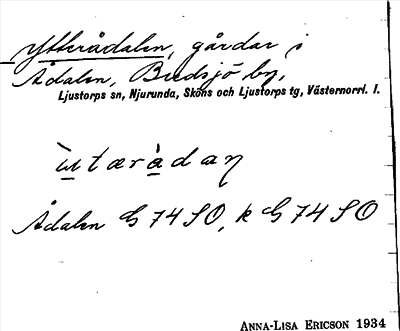 Ytterådalen, gårdar i
Ådalen, Bredsjö by,
Ljustorps sn, Njurunda, Sköns och Ljustorps tg, Västernorrl. l.
ùtæràdaɳ
Ådalen G 74 SO, k G 74 SO
ANNA-LISA ERICSON 1934